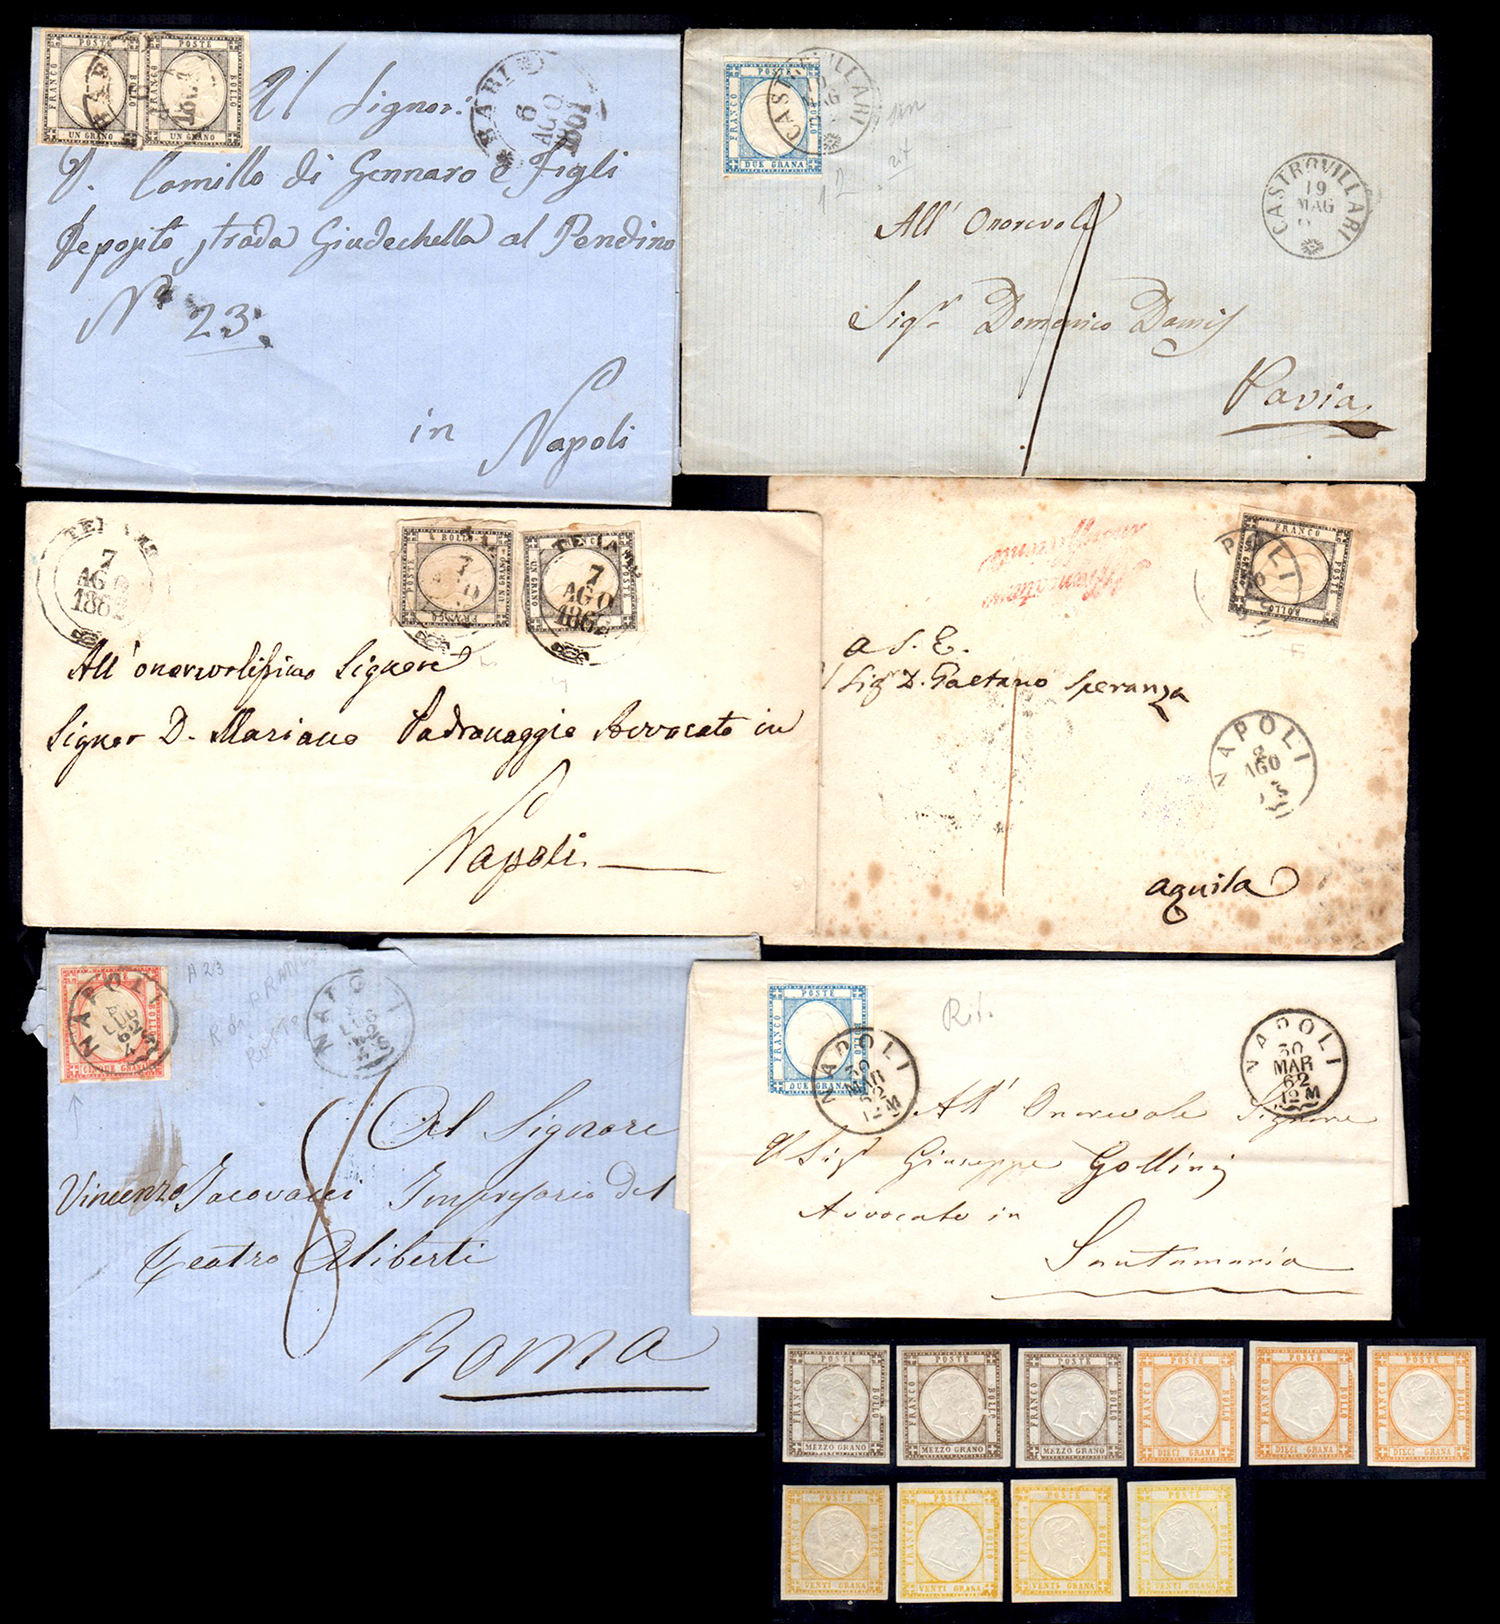 POSTE
FRANCO
BOLLO
UN GRANO
POSTE
FRANCO
BOLLO
UN GRANO
BARI
6
AGO
1861
Al Signor:
D. Camillo di Gennaro e Figli
Deposito strada Giudechella al Pendino
N° 23.
in Napoli
POSTE
FRANCO
BOLLO
DUE GRANA
CASTROVILLARI
CASTROVILLARI
19
MAG
12
All' Onorevole
Sigr Domenico Damis
Pavia
7
AGO
1862
BOLLO
POSTE
UN GRANO
FRANCO
7
UN GRANO
7
AGO
1862
All' onorevolissimo Signore
Signor D. Mariano Padronaggio Avvocato in
Napoli
FRANCO
POSTE
BOLLO
a S. E.
Sigr D. Gaetano Speranza
NAPOLI
2
AGO
Aquila
BOLLO
CINQUE GRANA
NAPOLI
LUG
62
NAPOLI
LUG
A 23
Al Signore
Vincenzo Jacovacci Impresario del
Teatro Aliberti
Roma
POSTE
FRANCO
BOLLO
DUE GRANA
NAPOLI
30
MAR
62
12 M
NAPOLI
30
MAR
62
12 M
All' Onorevole Signore
Il Sigr Giuseppe Gollini
Avvocato in
Santamaria
POSTE
FRANCO
BOLLO
MEZZO GRANO
POSTE
FRANCO
BOLLO
MEZZO GRANO
POSTE
FRANCO
BOLLO
MEZZO GRANO
POSTE
FRANCO
BOLLO
DIECI GRANA
POSTE
FRANCO
BOLLO
DIECI GRANA
POSTE
FRANCO
BOLLO
DIECI GRANA
POSTE
FRANCO
BOLLO
VENTI GRANA
POSTE
FRANCO
BOLLO
VENTI GRANA
POSTE
FRANCO
BOLLO
VENTI GRANA
POSTE
FRANCO
BOLLO
VENTI GRANA